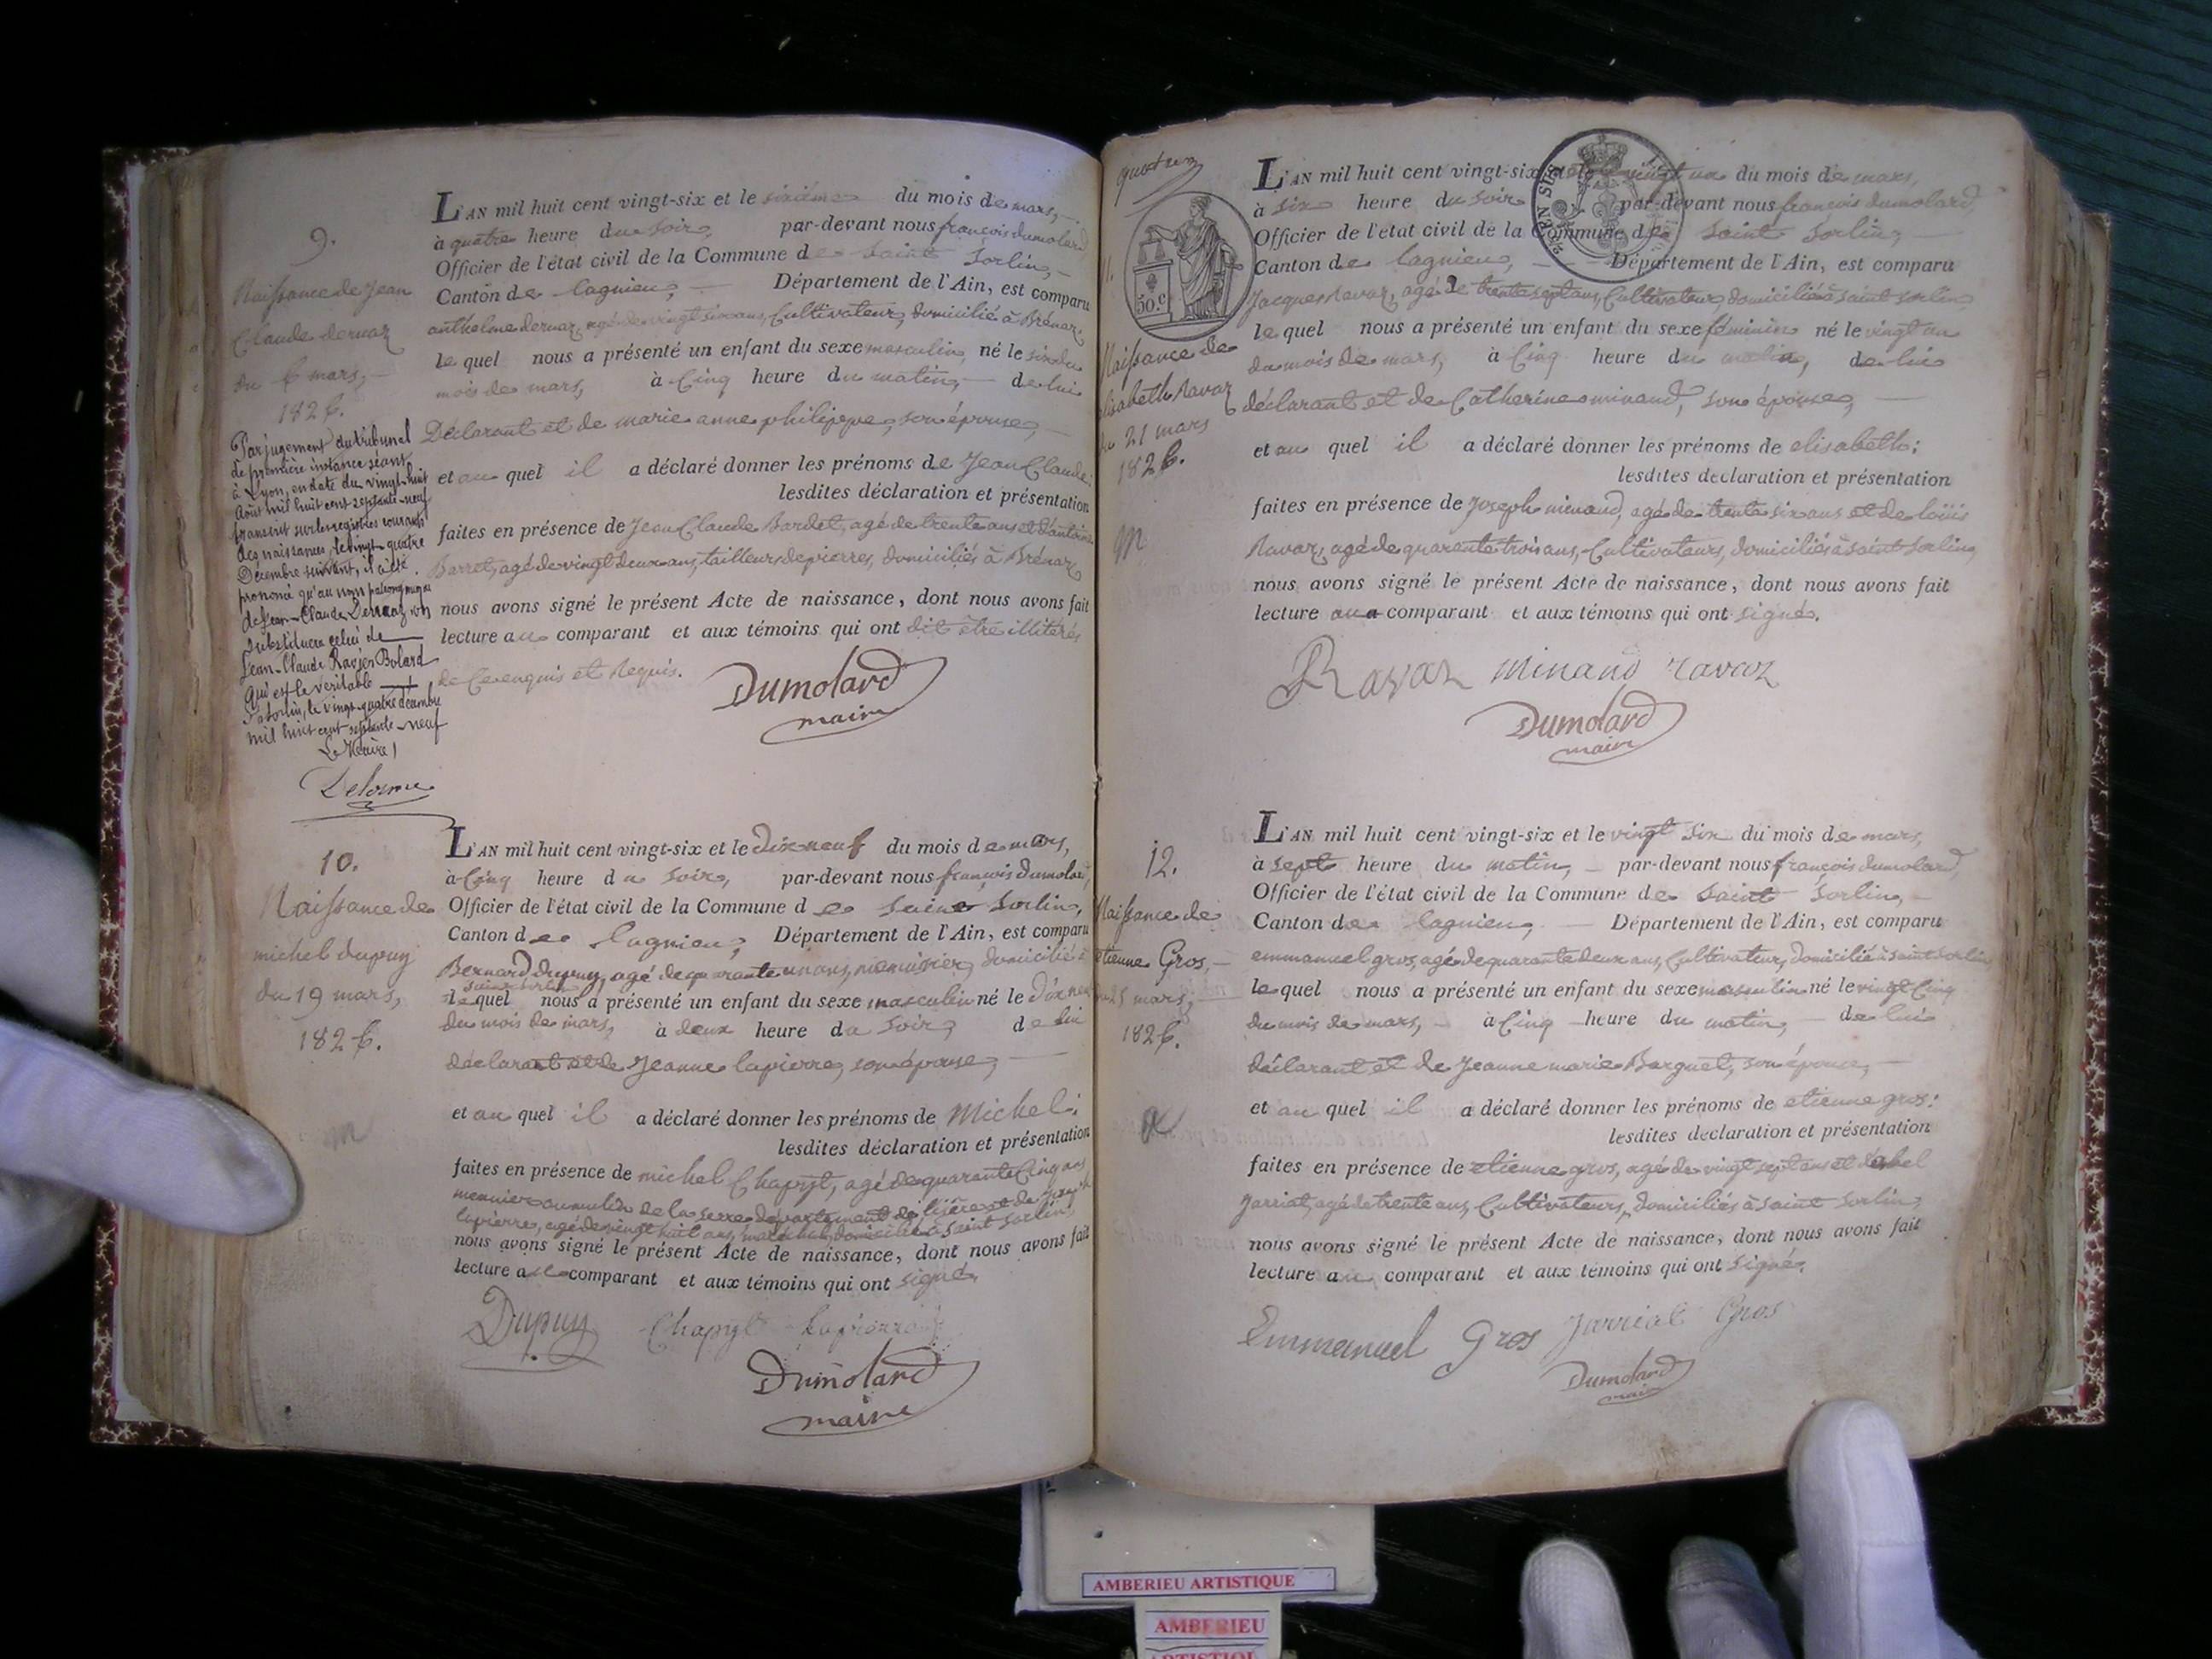 9.
Naissance de Jean
Claude dervaz
du 6 mars,
1826.
Par jugement du tribunal
de première instance séant
à Lyon, en date du vingt-huit
Août mil huit cent septante-neuf
transcrit sur les registres courants
des naissances, le vingt-quatre
Décembre suivant, il a été
prononcé qu'au nom patronymique
de Jean-Claude Dervaz on
substituera celui de
Jean-Claude Ravier Bolard
qui est le véritable
St Sorlin, le vingt-quatre décembre
mil huit cent septante-neuf
Le Maire
Delorme
L'AN mil huit cent vingt-six et le sixième du mois de mars,
à quatre heure du soir, par-devant nous françois dumolard
Officier de l'état civil de la Commune de Saint Sorlin,
Canton de lagnieu, Département de l'Ain, est comparu
anthelme dervaz, agé de vingt six ans, Cultivateur, domicilié à Brénaz,
le quel nous a présenté un enfant du sexe masculin, né le six du
mois de mars, à Cinq heure du matin, de lui
Déclarant et de marie anne philippe, son épouse,
et au quel il a déclaré donner les prénoms de Jean Claude:
lesdites déclaration et présentation
faites en présence de Jean Claude Bardet, agé de trente ans et d'antoine
Barret, agé de vingt deux ans, tailleurs de pierres, domiciliés à Brénaz
nous avons signé le présent Acte de naissance, dont nous avons fait
lecture au comparant et aux témoins qui ont dit être illitérés
de Ce enquis et Requis.
Dumolard
maire
10.
Naissance de
michel dupuy
du 19 mars,
1826.
m
L'AN mil huit cent vingt-six et le Dix neuf du mois de mars,
à Cinq heure du soir, par-devant nous françois dumolard,
Officier de l'état civil de la Commune de Saint Sorlin,
Canton de lagnieu, Département de l'Ain, est comparu
Bernard dupuy, agé de quarante un ans, menuisier, domicilié à
saint sorlin
le quel nous a présenté un enfant du sexe masculin né le Dix neuf
du mois de mars, à deux heure du soir, de lui
déclarant et de Jeanne lapierre, son épouse,
et au quel il a déclaré donner les prénoms de Michel:
lesdites déclaration et présentation
faites en présence de michel Chapyt, agé de quarante Cinq ans
meunier au mulin de la serre département de l'isère et de Joseph
lapierre, agé de vingt huit ans, domicilié à saint sorlin,
nous avons signé le présent Acte de naissance, dont nous avons fait
lecture au comparant et aux témoins qui ont signé,
Dupuy Chapyt Lapierre
Dumolard
maire
50.c
Naissance de
Elisabeth Ravaz
du 21 mars
1826.
m
L'AN mil huit cent vingt-six et le vingt un du mois de mars,
à six heure du soir par-devant nous françois dumolard,
Officier de l'état civil de la Commune de saint Sorlin,
Canton de lagnieu, Département de l'Ain, est comparu
Jacques Ravaz, agé de trente sept ans, Cultivateur, domicilié à saint sorlin
le quel nous a présenté un enfant du sexe féminin né le vingt un
du mois de mars, à Cinq heure du matin, de lui
déclarant et de Catherine minaud, son épouse,
et au quel il a déclaré donner les prénoms de elisabeth:
lesdites declaration et présentation
faites en présence de Joseph minaud, agé de trente six ans et de loüis
Ravaz, agé de quarante trois ans, Cultivateurs, domiciliés à saint sorlin,
nous avons signé le présent Acte de naissance, dont nous avons fait
lecture au comparant et aux témoins qui ont signé.
Ravaz Minaud ravaz
Dumolard
maire
12.
Naissance de
etienne Gros,
du 25 mars,
1826.
L'AN mil huit cent vingt-six et le vingt six du mois de mars,
à sept heure du matin, par-devant nous françois dumolard,
Officier de l'état civil de la Commune de saint Sorlin,
Canton de lagnieu, Département de l'Ain, est comparu
emmanuel gros, agé de quarante deux ans, Cultivateur, domicilié à saint sorlin
le quel nous a présenté un enfant du sexe masculin né le vingt Cinq
du mois de mars, à Cinq heure du matin, de lui
déclarant et de Jeanne marie Barguet, son épouse,
et au quel il a déclaré donner les prénoms de etienne gros:
lesdites declaration et présentation
faites en présence de etienne gros, agé de vingt sept ans et d'abel
Jarriat, agé de trente ans, Cultivateurs, domiciliés à saint sorlin,
nous avons signé le présent Acte de naissance, dont nous avons fait
lecture au comparant et aux témoins qui ont signé,
Emmanuel Gros Jarriat Gros
Dumolard
maire
AMBERIEU ARTISTIQUE
AMBERIEU
ARTISTIQUE